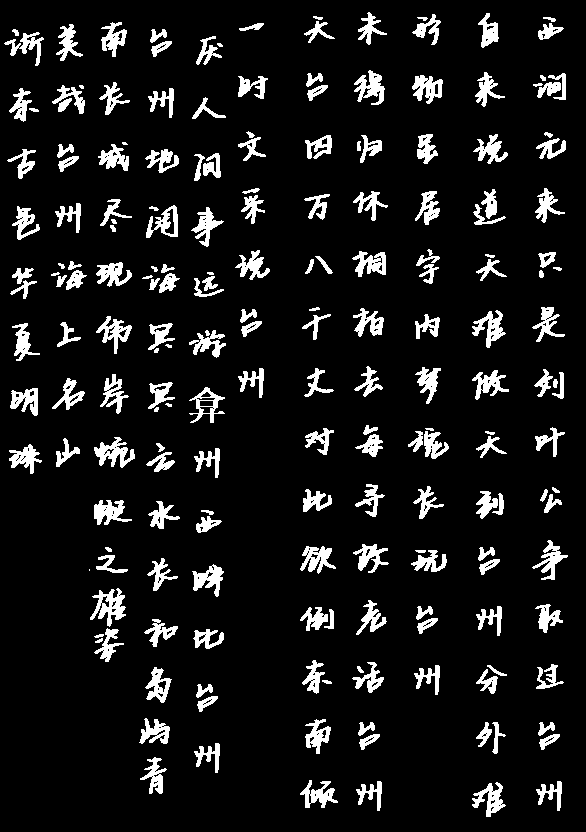 西涧元来只是刘叶公争取过台州
自来说道天难做天到台州分外难
形物虽居宇内梦魂长玩台州
未得归休桐柏去每寻故老话台州
天台四万八千丈对此欲倒东南倾
一时文采说台州
厌人间事远游弇州西眺比台州
台州地阔海冥冥云水长和岛屿青
南长城尽现伟岸蜿蜒之雄姿
美哉台州海上名山
浙东古邑华夏明珠